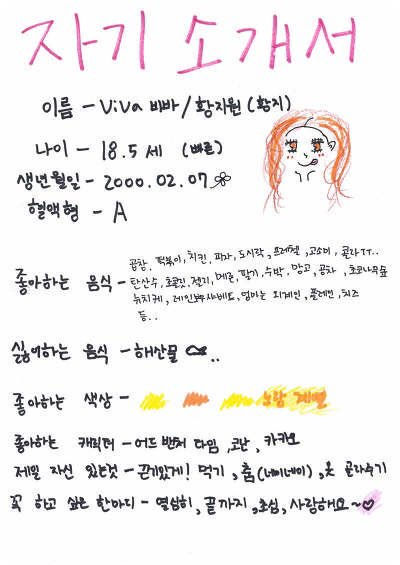 자기 소개서
이름 - ViVa 비바 / 황지원 (황지)
나이 - 18.5 세 (빠른)
생년월일 - 2000. 02. 07
혈액형 - A
좋아하는 음식 - 곱창, 떡볶이, 치킨, 피자, 도시락, 프레첼, 고소미, 콜라 ㅠㅠ..
탄산수, 초콜릿, 젤리, 메론, 딸기, 수박, 망고, 공차, 초코나무숲
뉴치케, 레인보우샤베트, 엄마는 외계인, 플레인, 치즈
등..
싫어하는 음식 - 해산물 ..
좋아하는 색상 - 노랑 계열
좋아하는 캐릭터 - 어드벤처 타임, 코난, 카카오
제일 자신 있는것 - 끈기있게! 먹기, 춤(네네네이), 옷 골라주기
꼭 하고 싶은 한마디 - 열심히, 끝까지, 초심, 사랑해요~♡